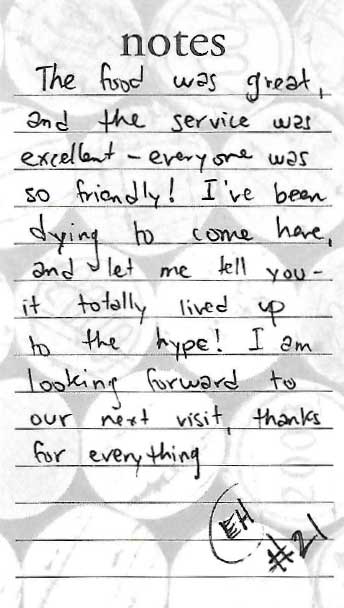 notes
The food was great,
and the service was
excellent - everyone was
so friendly! I've been
dying to come here,
and let me tell you -
it totally lived up
to the hype! I am
looking forward to
our next visit, thanks
for everything
EH
#21